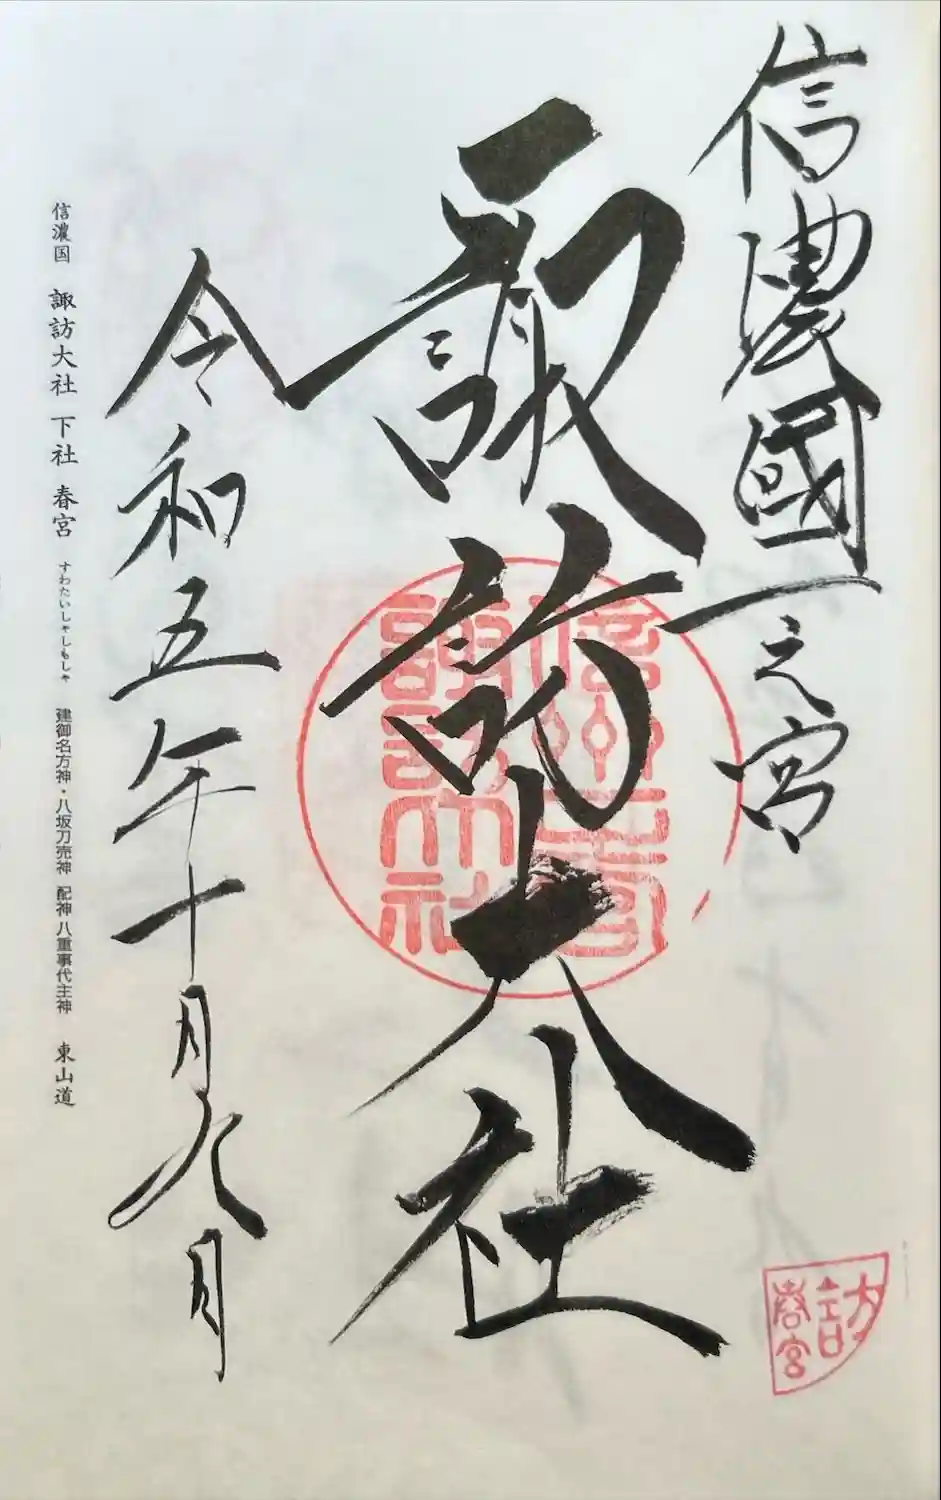 信濃國一之宮
諏訪大社
令和五年十月九日
信濃国 諏訪大社 下社 春宮 すわたいしゃしもしゃ 建御名方神・八坂刀売神 配神 八重事代主神 東山道
信州一之宮
諏訪大社
訪
春宮